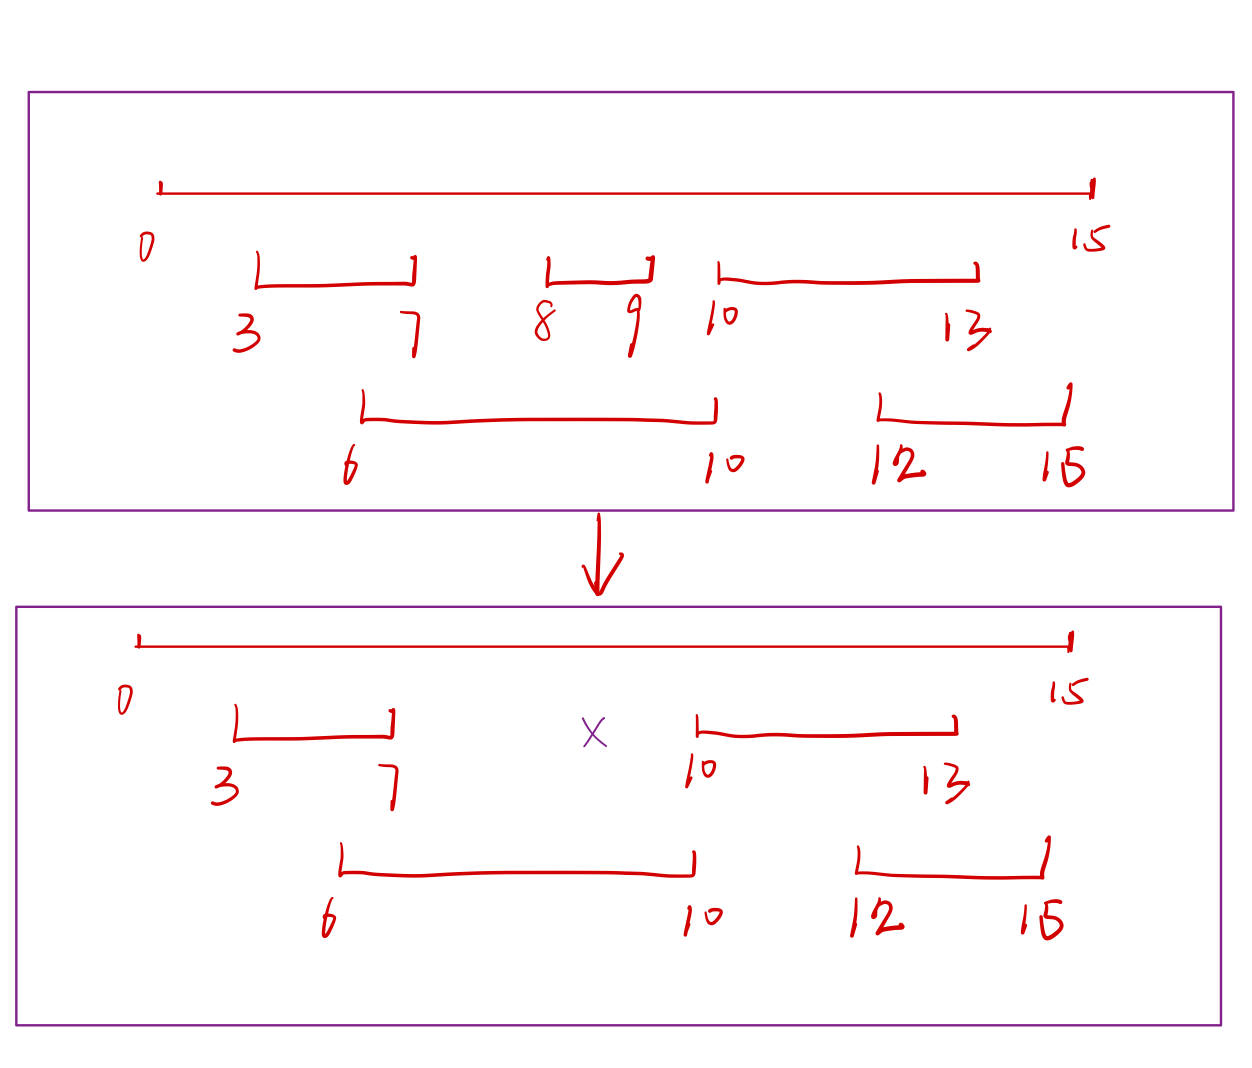 0 15
3 7 8 9 10 13
6 10 12 15
0 15
3 7 X 10 13
6 10 12 15